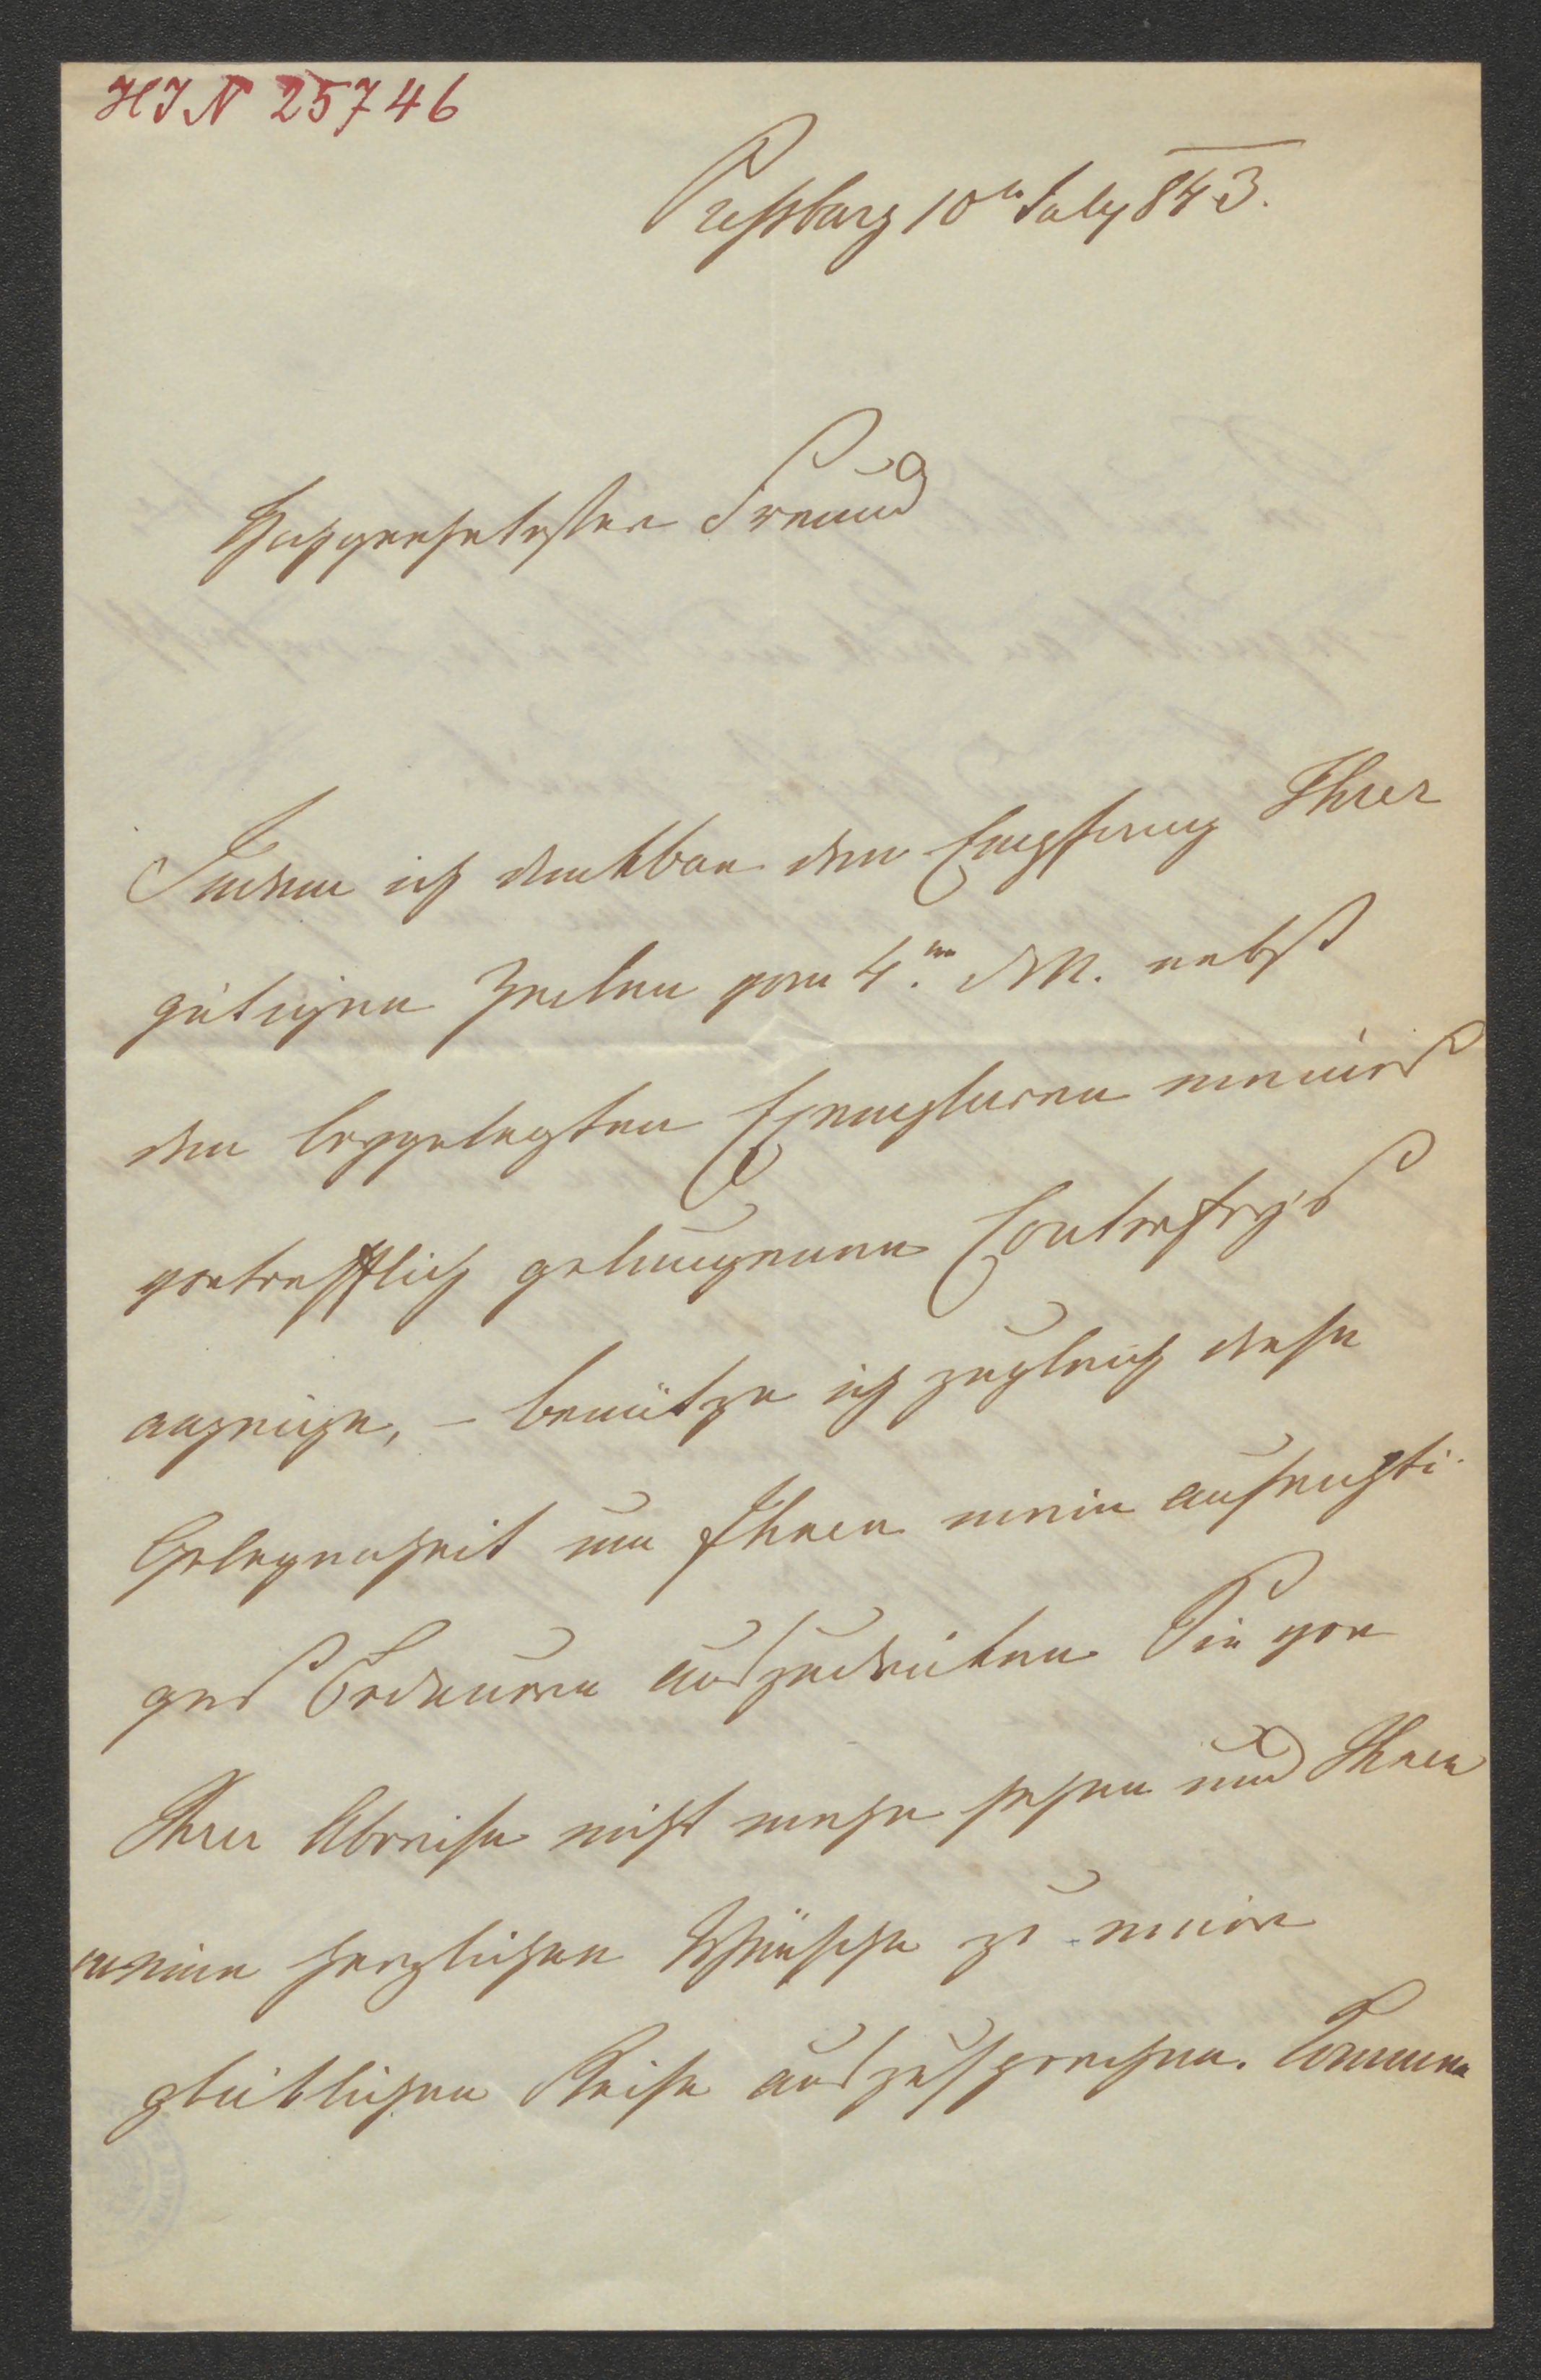 HIN 25746
Preßburg 10t July 843.
Hochgeehrtester Freund
Indem ich dankbar den Empfang Ihrer
gütigen Zeilen vom 4.ten d M. nebst
den beygelegten Exemplaren meines
vortrefflich gelungenen Conterfey's
anzeige, – benütze ich zugleich diese
Gelegenheit um Ihnen mein aufrichti-
ges Bedauern auszudrücken Sie vor
Ihrer Abreise nicht mehr sehen und Ihnen
meine herzlichen Wünsche zu einer
glücklichen Reise auszusprechen.